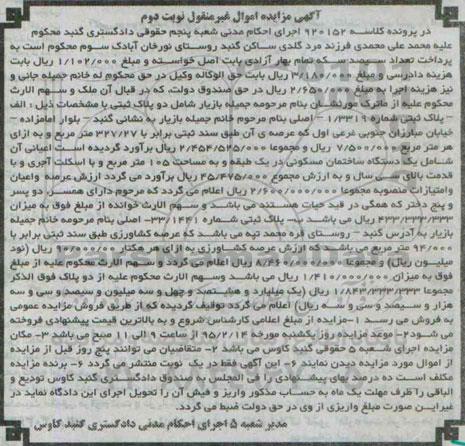 آگهی مزایده اموال غیرمنقول نوبت دوم
در پرونده کلاسه ۹۲۰۱۵۲ اجرای احکام مدنی شعبه پنجم حقوقی دادگستری گنبد محکوم
علیه محمد علی محمدی فرزند مرد گلدی ساکن گنبد روستای نورخان آبادک سوم محکوم است به
پرداخت تعداد سیصد سکه تمام بهار آزادی بابت اصل خواسته و مبلغ ۱/۱۰۲/۰۰۰ ریال بابت
هزینه دادرسی و مبلغ ۳/۱۸۰/۰۰۰ ریال بابت حق الوکاله وکیل در حق محکوم له خانم جمیله جانی و
نیز هزینه اجرا به مبلغ ۲/۶۵۰/۰۰۰ ریال در حق صندوق دولت، که در قبال آن ملک و سهم الارث
محکوم علیه از ماترک مورثشان بنام مرحومه جمیله بازیار شامل دو پلاک ثبتی با مشخصات ذیل: الف
- پلاک ثبتی شماره ۱/۳۳۱۹ - اصلی بنام مرحوم خانم جمیله بازیار به نشانی گنبد - بلوار امامزاده -
خیابان مبارزان جنوبی فرعی اول که عرصه ی آن طبق سند ثبتی برابر با ۳۲۷/۲۷ متر مربع و به ازای
هر متر مربع ۷/۵۰۰/۰۰۰ ریال و مجموعا ۲/۴۵۴/۵۲۵/۰۰۰ ریال برآورد گردیده است اعیانی آن
شامل یک دستگاه ساختمان مسکونی در یک طبقه و به مساحت ۱۰۵ متر مربع و با اسکلت آجری و با
قدمت بالای سی سال و به ارزش مجموع ۴۵/۴۷۵/۰۰۰ ریال برآورد می گردد ارزش عرصه واعیان
وامتیازات منصوبه مجموعا ۲/۶۰۰/۰۰۰/۰۰۰ ریال اعلام می گردد که مرحوم دارای همسر، دو پسر
و پنج دختر که همگی در قید حیات هستند می باشد و سهم الارث خوانده از مبلغ فوق به میزان
۴۳۳/۳۳۳/۳۳۳ ریال می باشد ب- پلاک ثبتی شماره ۳۳/۱۴۴۱- اصلی بنام مرحومه خانم جمیله
بازیار به آدرس گنبد - روستای قره محمد تپه می باشد که عرصه کشاورزی طبق سند ثبتی برابر با
۹۴/۰۰۰ متر مربع می باشد که ارزش عرصه کشاورزی به ازای هر هکتار ۹۰/۰۰۰/۰۰۰ ریال (نود
میلیون ریال) و مجموعا ۸/۴۶۰/۰۰۰/۰۰۰ ریال اعلام می گردد و سهم الارث محکوم علیه از مبلغ
فوق به میزان ۱/۴۱۰/۰۰۰/۰۰۰ ریال می باشد وسهم الارث محکوم علیه از دو پلاک فوق الذکر
مجموعا ۱/۸۴۳/۳۳۳/۳۳۳ ریال (یک میلیارد و هشتصد و چهل و سه میلیون و سیصد و سی و سه
هزار و سیصد و سی و سه ریال) اعلام می گردد توقیف گردیده که از طریق فروش مزایده عمومی
به فروش می رسد ۱ -مزایده از مبلغ اعلامی کارشناس شروع و به بالاترین قیمت پیشنهادی فروخته
می شود۲- موعد مزایده روز یکشنبه مورخه ۹۵/۲/۱۴ از ساعت ۹ الی ۱۱ صبح می باشد ۳- مکان
مزایده اجرای شعبه ۵ حقوقی گنبد کاوس می باشد ۲- متقاضیان می توانند پنج روز قبل از مزایده
از اموال مورد مزایده دیدن نمایند ۶- این آگهی فقط در یک نوبت منتشر می گردد ۶- برنده مزایده
مکلف است ده درصد بهای پیشنهادی را فی المجلس به صندوق دادگستری گنبد کاوس تودیع و
الباقی را ظرف مهلت یک ماه به حساب مذکور واریز و فیش آن را تحویل اجرای این دادگاه نماید در
غیر این صورت مبلغ واریزی از وی در حق دولت ضبط می گردد.
مدیر شعبه ۵ اجرای احکام مدنی دادگستری گنبد کاوس